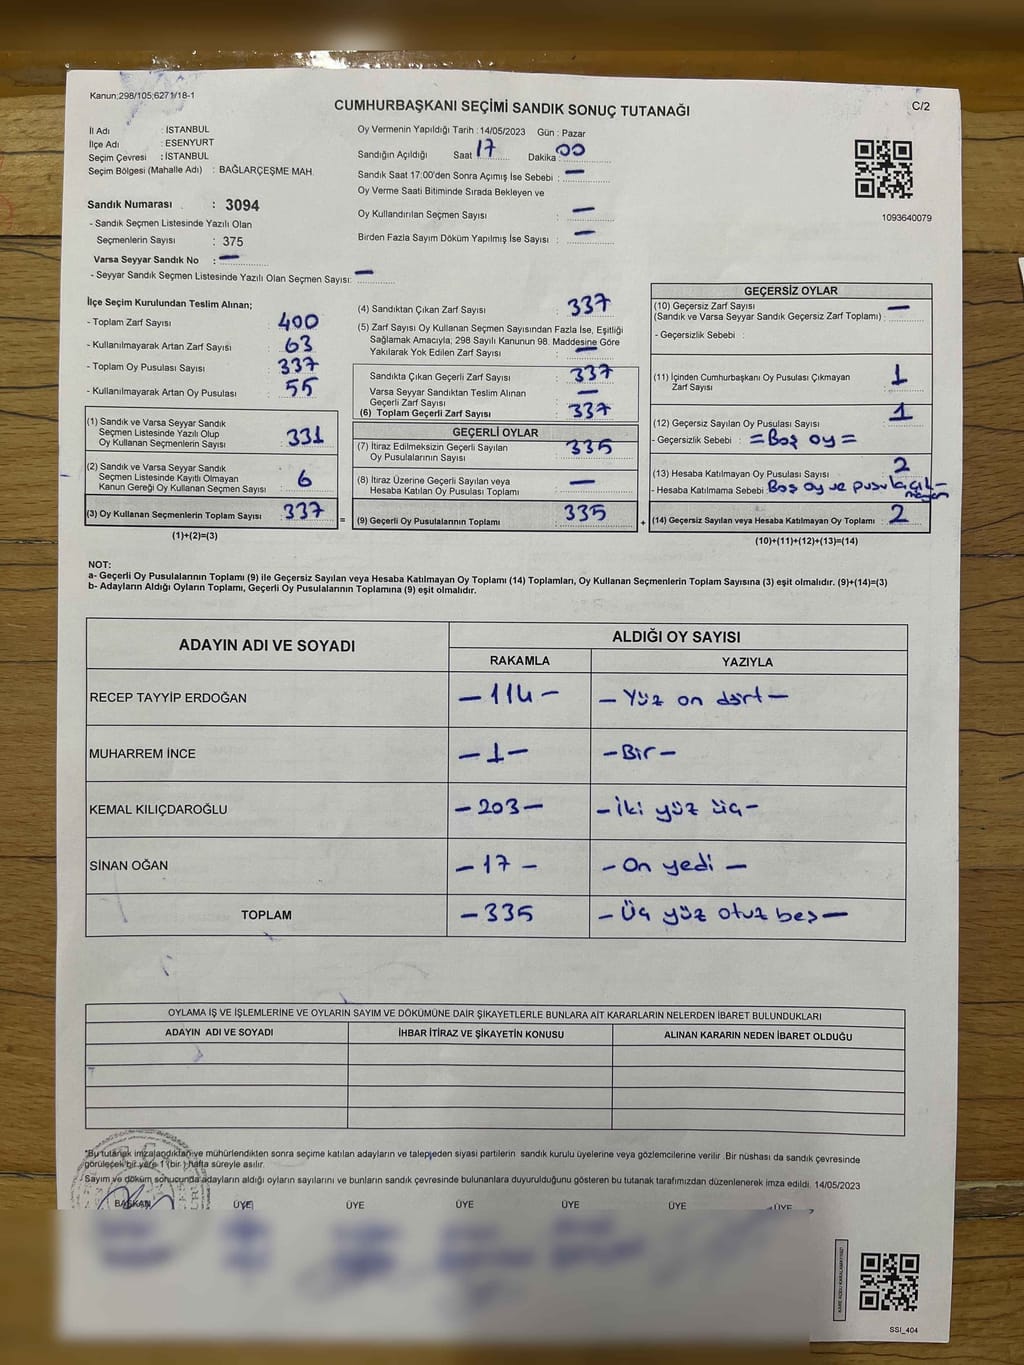 Kanun;298/105;6271/18-1
CUMHURBAŞKANI SEÇİMİ SANDIK SONUÇ TUTANAĞI
C/2
İl Adı : İSTANBUL
İlçe Adı : ESENYURT
Seçim Çevresi : İSTANBUL
Seçim Bölgesi (Mahalle Adı) : BAĞLARÇEŞME MAH.
Sandık Numarası : 3094
- Sandık Seçmen Listesinde Yazılı Olan
Seçmenlerin Sayısı : 375
Varsa Seyyar Sandık No : —
- Seyyar Sandık Seçmen Listesinde Yazılı Olan Seçmen Sayısı: —
Oy Vermenin Yapıldığı Tarih : 14/05/2023 Gün : Pazar
Sandığın Açıldığı Saat 17 Dakika 00
Sandık Saat 17:00'den Sonra Açımış İse Sebebi : —
Oy Verme Saati Bitiminde Sırada Bekleyen ve
Oy Kullandırılan Seçmen Sayısı : —
Birden Fazla Sayım Döküm Yapılmış İse Sayısı : —
1093640079
İlçe Seçim Kurulundan Teslim Alınan;
- Toplam Zarf Sayısı : 400
- Kullanılmayarak Artan Zarf Sayısı : 63
- Toplam Oy Pusulası Sayısı : 337
- Kullanılmayarak Artan Oy Pusulası : 55
(1) Sandık ve Varsa Seyyar Sandık
Seçmen Listesinde Yazılı Olup
Oy Kullanan Seçmenlerin Sayısı : 331
(2) Sandık ve Varsa Seyyar Sandık
Seçmen Listesinde Kayıtlı Olmayan
Kanun Gereği Oy Kullanan Seçmen Sayısı : 6
(3) Oy Kullanan Seçmenlerin Toplam Sayısı : 337
(1)+(2)=(3)
(4) Sandıktan Çıkan Zarf Sayısı : 337
(5) Zarf Sayısı Oy Kullanan Seçmen Sayısından Fazla İse, Eşitliği
Sağlamak Amacıyla, 298 Sayılı Kanunun 98. Maddesine Göre
Yakılarak Yok Edilen Zarf Sayısı : —
Sandıkta Çıkan Geçerli Zarf Sayısı : 337
Varsa Seyyar Sandıktan Teslim Alınan
Geçerli Zarf Sayısı : —
(6) Toplam Geçerli Zarf Sayısı : 337
GEÇERLİ OYLAR
(7) İtiraz Edilmeksizin Geçerli Sayılan
Oy Pusulalarının Sayısı : 335
(8) İtiraz Üzerine Geçerli Sayılan veya
Hesaba Katılan Oy Pusulası Toplamı : —
= (9) Geçerli Oy Pusulalarının Toplamı : 335
GEÇERSİZ OYLAR
(10) Geçersiz Zarf Sayısı
(Sandık ve Varsa Seyyar Sandık Geçersiz Zarf Toplamı) : —
- Geçersizlik Sebebi :
(11) İçinden Cumhurbaşkanı Oy Pusulası Çıkmayan
Zarf Sayısı : 1
(12) Geçersiz Sayılan Oy Pusulası Sayısı : 1
- Geçersizlik Sebebi : =Boş oy=
(13) Hesaba Katılmayan Oy Pusulası Sayısı : 2
- Hesaba Katılmama Sebebi : Boş oy ve pusula çık-
mayan
+ (14) Geçersiz Sayılan veya Hesaba Katılmayan Oy Toplamı : 2
(10)+(11)+(12)+(13)=(14)
NOT:
a- Geçerli Oy Pusulalarının Toplamı (9) ile Geçersiz Sayılan veya Hesaba Katılmayan Oy Toplamı (14) Toplamları, Oy Kullanan Seçmenlerin Toplam Sayısına (3) eşit olmalıdır. (9)+(14)=(3)
b- Adayların Aldığı Oyların Toplamı, Geçerli Oy Pusulalarının Toplamına (9) eşit olmalıdır.
ADAYIN ADI VE SOYADI
ALDIĞI OY SAYISI
RAKAMLA YAZIYLA
RECEP TAYYİP ERDOĞAN —114— —Yüz on dört—
MUHARREM İNCE —1— —Bir—
KEMAL KILIÇDAROĞLU —203— —İki yüz üç—
SİNAN OĞAN —17— —On yedi—
TOPLAM —335 —Üç yüz otuz beş—
OYLAMA İŞ VE İŞLEMLERİNE VE OYLARIN SAYIM VE DÖKÜMÜNE DAİR ŞİKAYETLERLE BUNLARA AİT KARARLARIN NELERDEN İBARET BULUNDUKLARI
ADAYIN ADI VE SOYADI İHBAR İTİRAZ VE ŞİKAYETİN KONUSU ALINAN KARARIN NEDEN İBARET OLDUĞU
*Bu tutanak imzalandıktan ve mühürlendikten sonra seçime katılan adayların ve talepjeden siyasi partilerin sandık kurulu üyelerine veya gözlemcilerine verilir .Bir nüshası da sandık çevresinde
görülecek bir yere 1 (bir ) hafta süreyle asılır.
Sayım ve döküm sonucunda adayların aldığı oyların sayılarını ve bunların sandık çevresinde bulunanlara duyurulduğunu gösteren bu tutanak tarafımızdan düzenlenerek imza edildi. 14/05/2023
BAŞKAN ÜYE ÜYE ÜYE ÜYE ÜYE ÜYE
SSİ_404